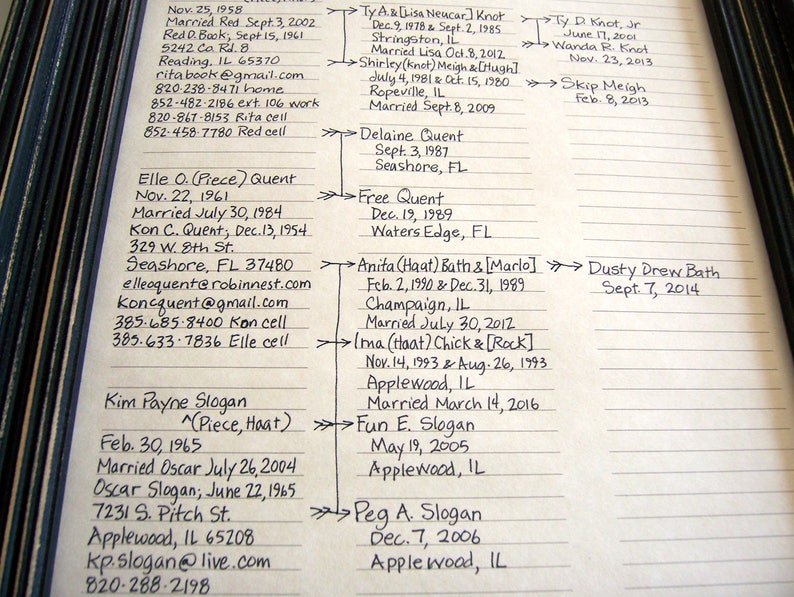 Nov. 25, 1958
Married Red Sept. 3, 2002
Red D. Book; Sept 15, 1961
5242 Co. Rd. 8
Reading, IL 65370
ritabook@gmail.com
820-238-8471 home
852-482-2186 ext. 106 work
820-867-8153 Rita cell
852-458-7780 Red cell
Elle O. (Piece) Quent
Nov. 22, 1961
Married July 30, 1984
Kon C. Quent; Dec. 13, 1954
329 W. 8th St.
Seashore, FL 37480
elleoquent@robinnest.com
koncquent@gmail.com
385-685-8400 Kon cell
385-633-7836 Elle cell
Kim Payne Slogan
^(Piece, Haat)
Feb. 30, 1965
Married Oscar July 26, 2004
Oscar Slogan; June 22, 1965
7231 S. Pitch St.
Applewood, IL 65208
kp.slogan@live.com
820-288-2198
Ty A. & [Lisa Neucar] Knot
Dec. 9, 1978 & Sept. 2, 1985
Stringston, IL
Married Lisa Oct. 8, 2012
Shirley (Knot) Meigh & [Hugh]
July 4, 1981 & Oct. 15, 1980
Ropeville, IL
Married Sept. 8, 2009
Delaine Quent
Sept. 3, 1987
Seashore, FL
Free Quent
Dec. 19, 1989
Waters Edge, FL
Anita (Haat) Bath & [Marlo]
Feb. 2, 1990 & Dec. 31, 1989
Champaign, IL
Married July 30, 2012
Ima (Haat) Chick & [Rock]
Nov. 14, 1993 & Aug. 26, 1993
Applewood, IL
Married March 14, 2016
Fun E. Slogan
May 19, 2005
Applewood, IL
Peg A. Slogan
Dec. 7, 2006
Applewood, IL
Ty D. Knot, Jr
June 17, 2001
Wanda R. Knot
Nov. 23, 2013
Skip Meigh
Feb. 8, 2013
Dusty Drew Bath
Sept. 7, 2014